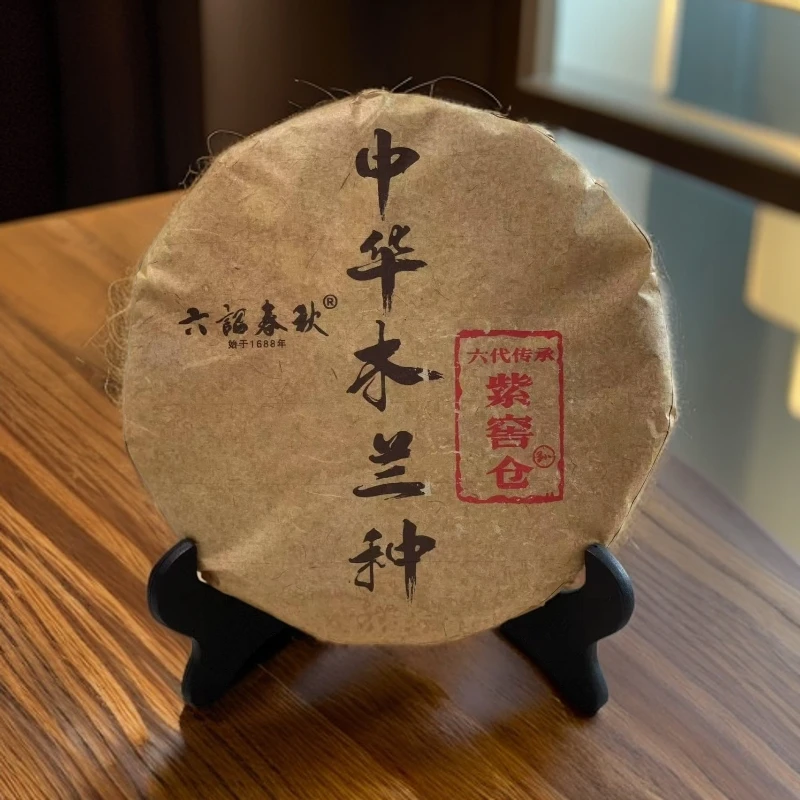 中华木兰种
六诏春秋®
始于1688年
六代传承
紫窖仓